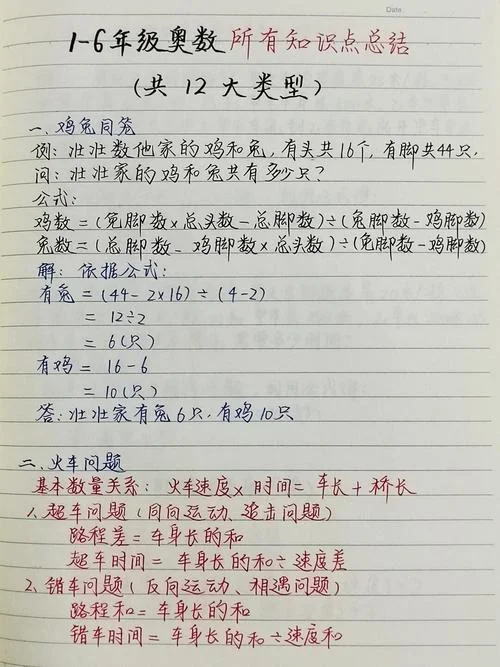 Date:
1-6年级奥数 所有知识点总结
(共 12 大类型)
一、鸡兔同笼
例：壮壮数他家的鸡和兔，有头共16个，有脚共44只，
问：壮壮家的鸡和兔共有多少只？
公式：
鸡数＝(兔脚数×总头数－总脚数)÷(兔脚数－鸡脚数)
兔数＝(总脚数－鸡脚数×总头数)÷(兔脚数－鸡脚数)
解：依据公式：
有兔＝(44－2×16)÷(4－2)
＝12÷2
＝6(只)
有鸡＝16－6
＝10(只)
答：壮壮家有兔6只，有鸡10只
二、火车问题
基本数量关系：火车速度×时间＝车长＋桥长
1、超车问题(同向运动、追击问题)
路程差＝车身长的和
超车时间＝车身长的和÷速度差
2、错车问题(反向运动、相遇问题)
路程和＝车身长的和
错车时间＝车身长的和÷速度和